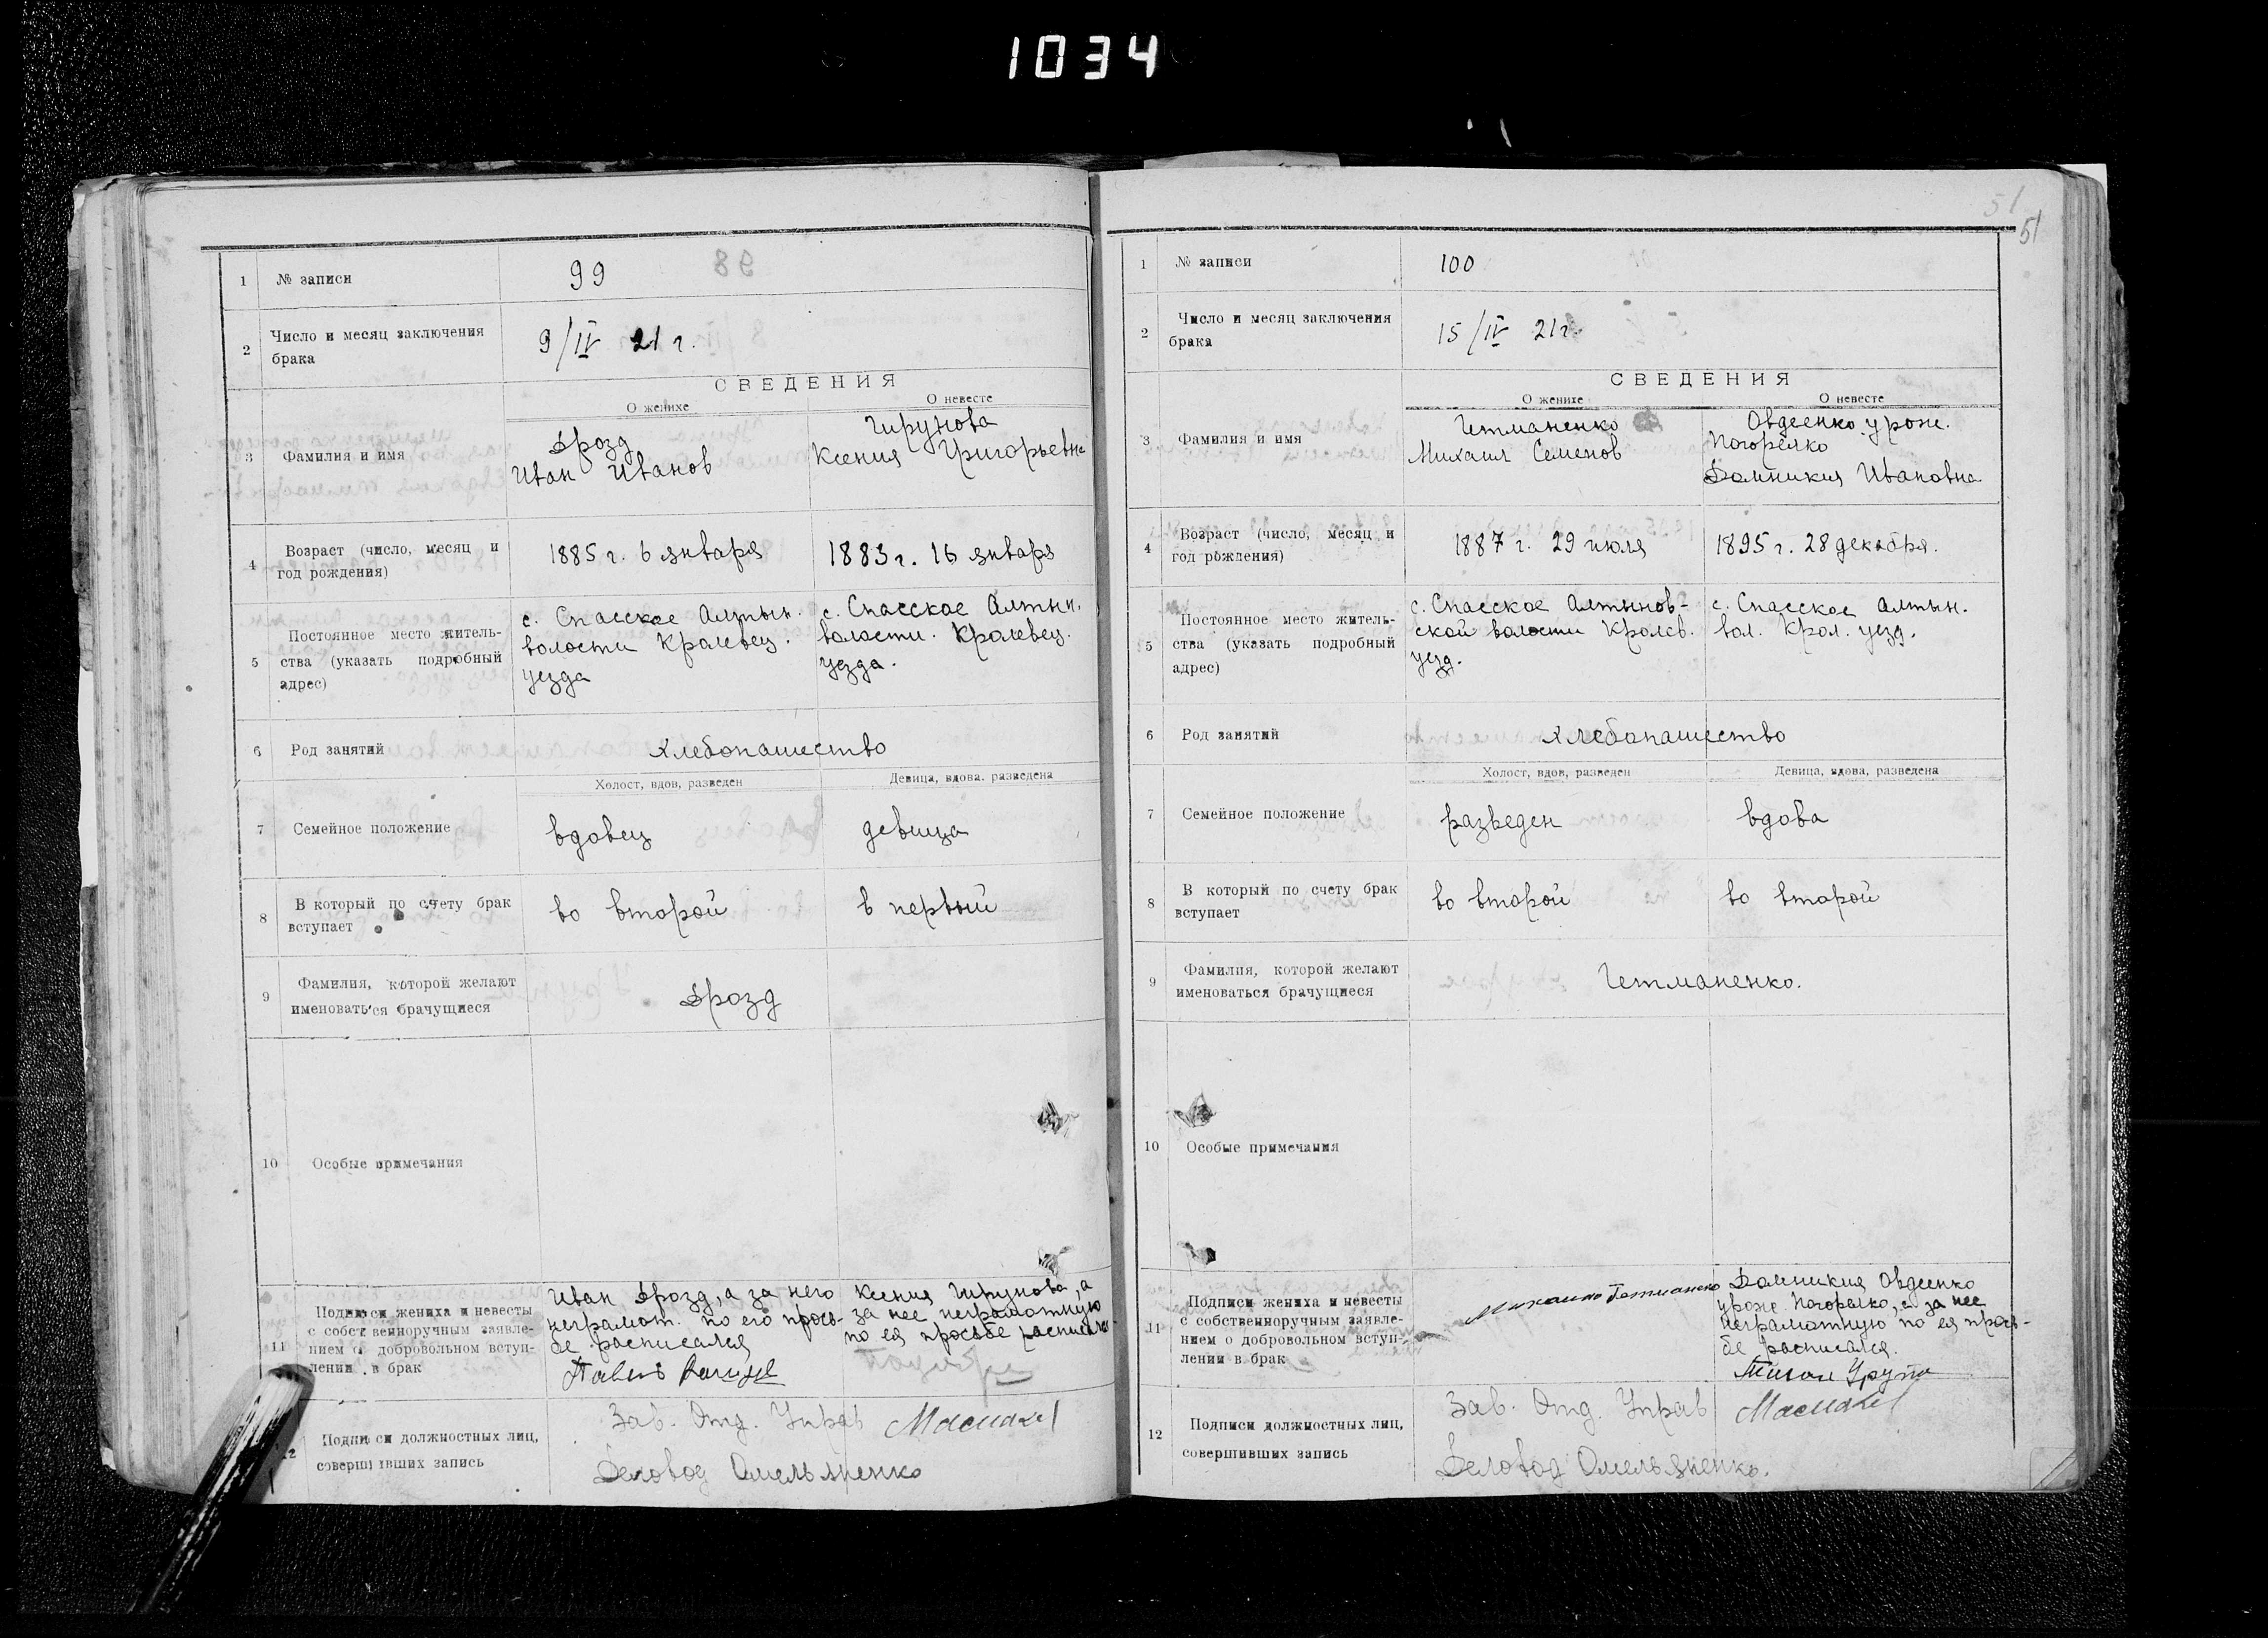 1034
1 № записи 99
2 Число и месяц заключения
брака
9/IV 21 г.
СВЕДЕНИЯ
О женихе О невесте
3 Фамилия и имя
Дрозд
Иван Иванов
Гирунова
Ксения Григорьевна
4 Возраст (число, месяц и
год рождения)
1885 г. 6 января
1883 г. 16 января
5 Постоянное место житель-
ства (указать подробный
адрес)
с. Спасское Алтын.
волости Кролевец.
уезда
с. Спасское Алтын.
волости. Кролевец.
уезда.
6 Род занятий хлебопашество
Холост, вдов, разведен Девица, вдова. разведена
7 Семейное положение вдовец девица
8 В который по счету брак
вступает
во второй в первый
9 Фамилия, которой желают
именоваться брачущиеся
Дрозд
10 Особые примечания
11 Подписи жениха и невесты
с собственноручным заявле-
нием о добровольном вступ-
лении в брак
Иван Дрозд, а за него
неграмот. по его прось-
бе расписался
Павел
Ксения Гирунова, а
за нее неграмотную
по ея просьбе расписался
12 Подписи должностных лиц,
совершивших запись
Зав. Отд. Управ
Деловод Омельяненко
51
51
1 № записи 100
2 Число и месяц заключения
брака
15/IV 21 г.
СВЕДЕНИЯ
О женихе О невесте
3 Фамилия и имя
Гетманенко
Михаил Семенов
Овдеенко урож.
Погорелко
Домникия Ивановна
4 Возраст (число, месяц и
год рождения)
1887 г. 29 июля
1895 г. 28 декабря.
5 Постоянное место житель-
ства (указать подробный
адрес)
с. Спасское Алтынов-
ской волости Кролев.
уезд.
с. Спасское Алтын.
вол. Крол. уезд.
6 Род занятий хлебопашество
Холост, вдов, разведен Девица, вдова, разведена
7 Семейное положение разведен вдова
8 В который по счету брак
вступает
во второй во второй
9 Фамилия, которой желают
именоваться брачущиеся
Гетманенко.
10 Особые примечания
11 Подписи жениха и невесты
с собственноручным заявле-
нием о добровольном вступ-
лении в брак
Домникия Овдеенко
урож. Погорелко, а за нее
неграмотную по ея прось-
бе расписался.
12 Подписи должностных лиц,
совершивших запись
Зав. Отд. Управ
Деловод Омельяненко.